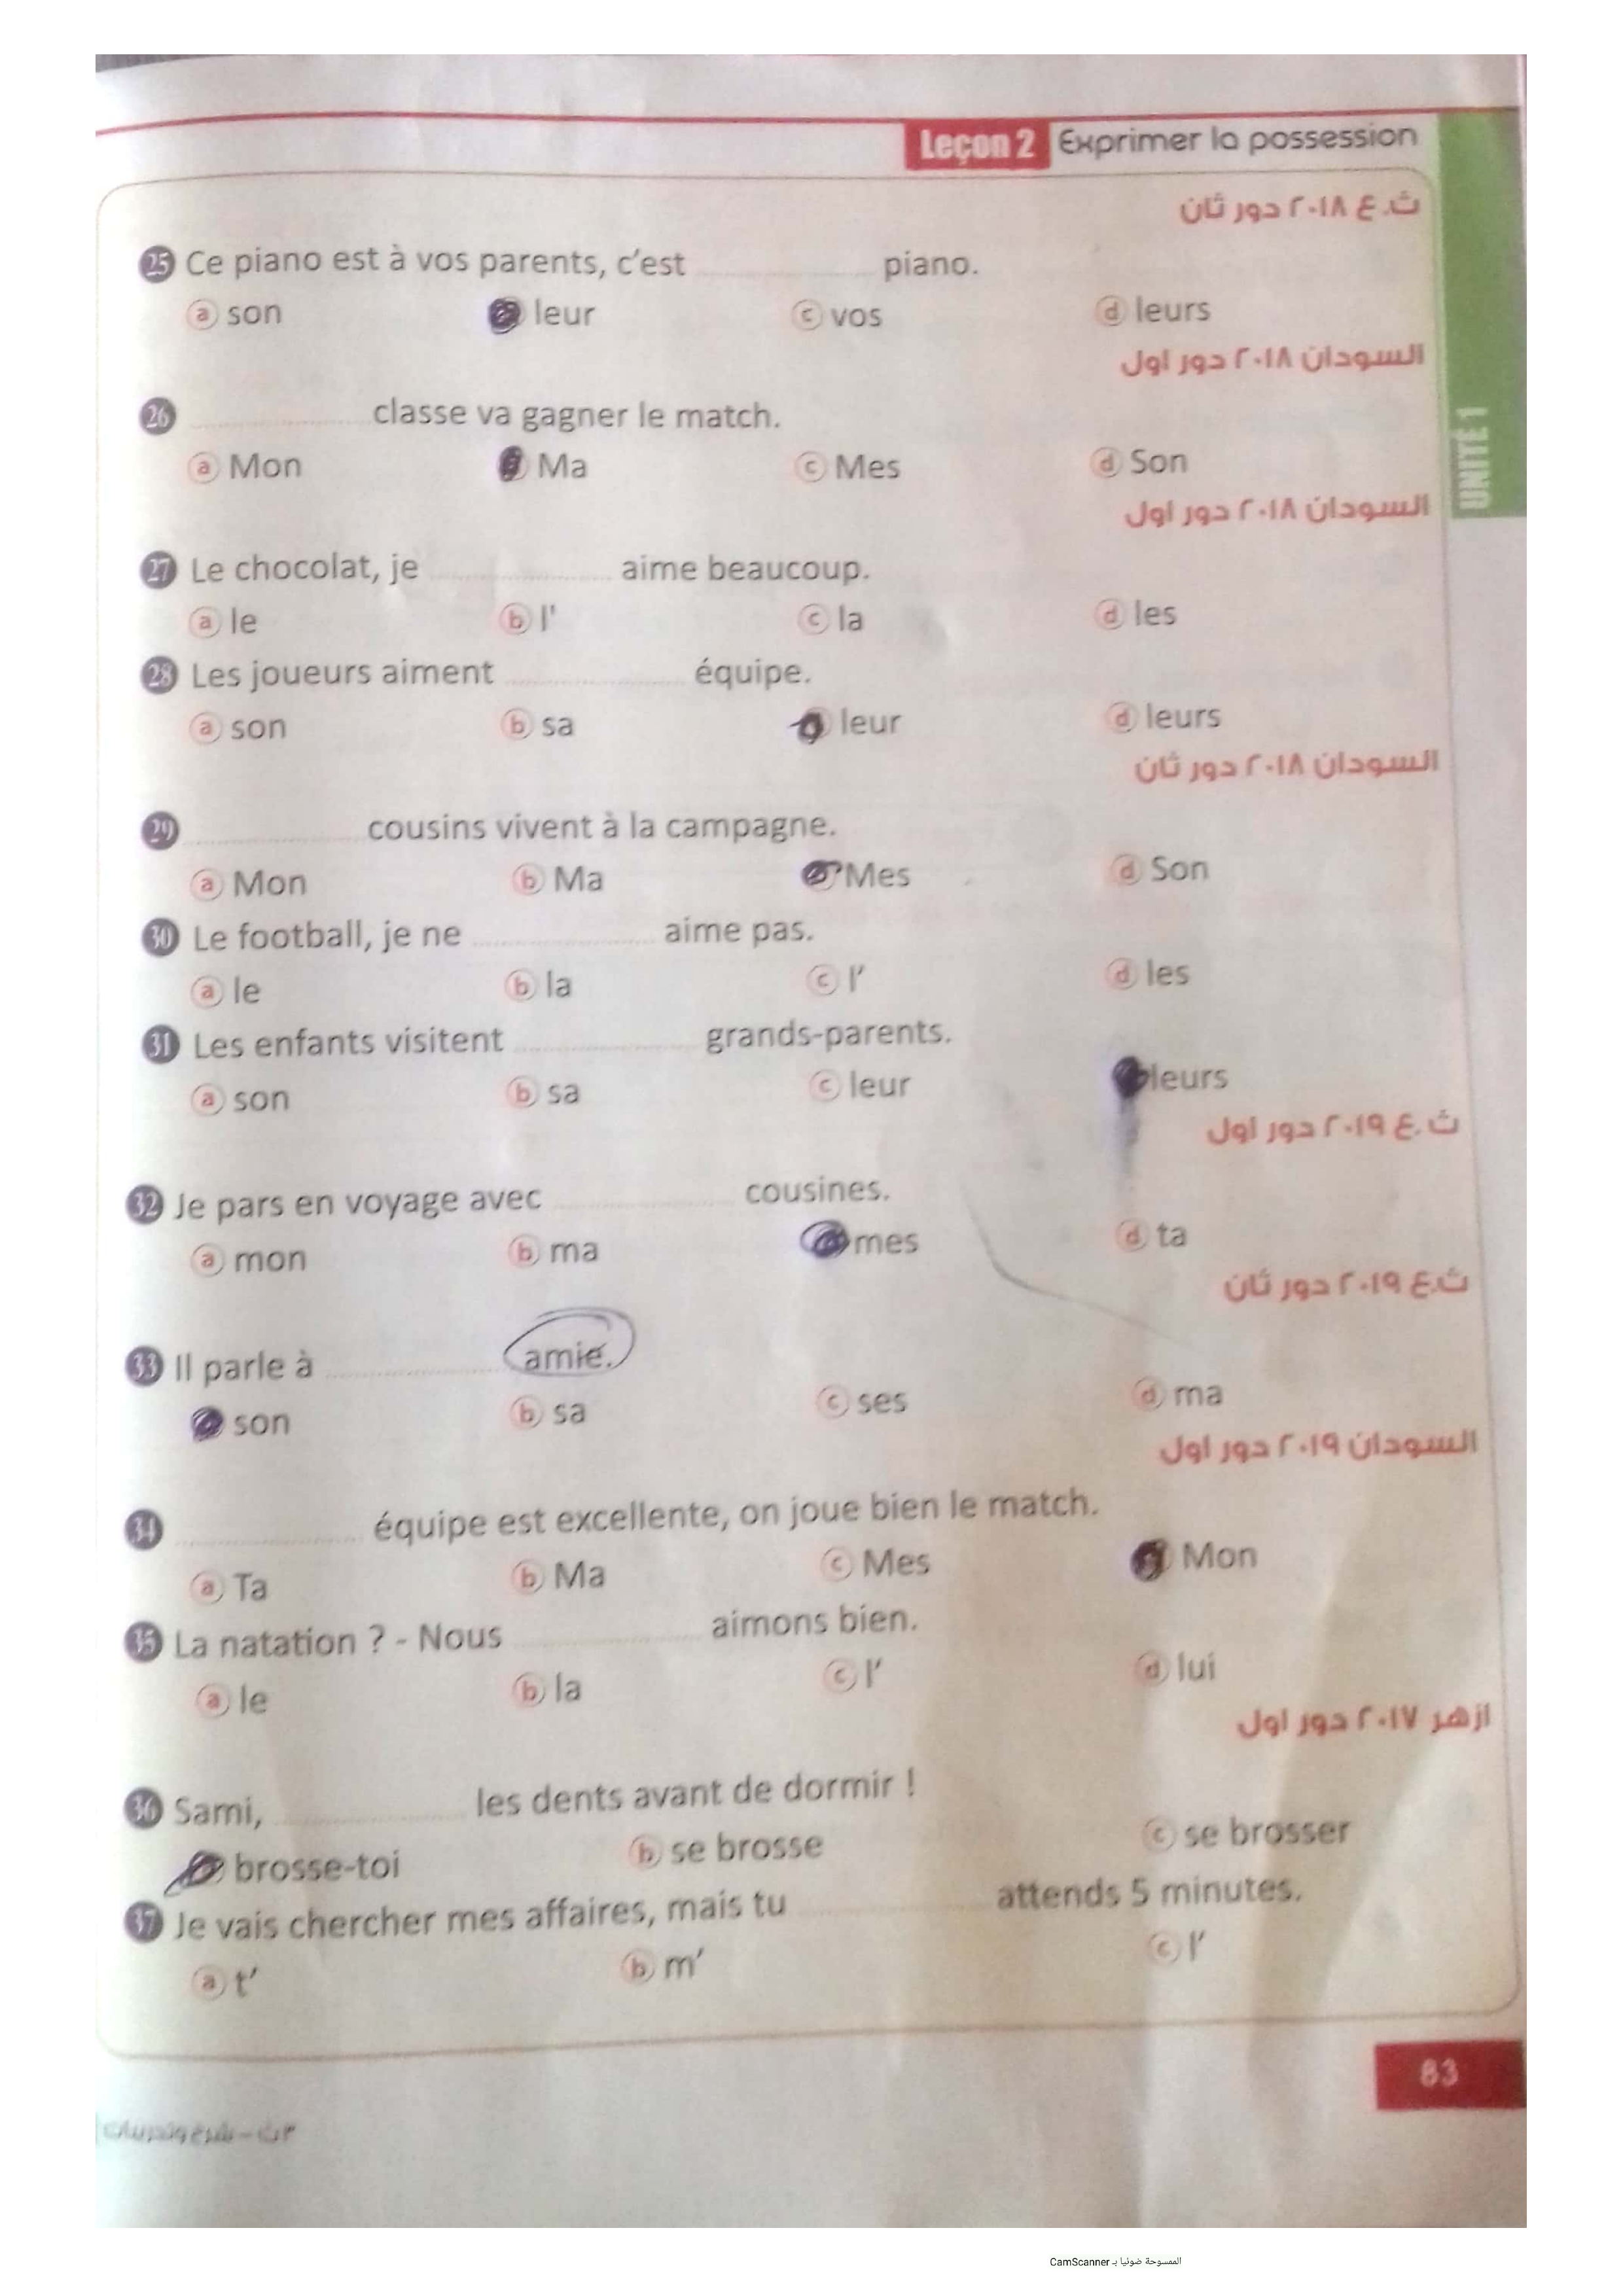 Leçon 2 Exprimer la possession
ث.ع ٢٠١٨ دور ثان
25 Ce piano est à vos parents, c’est ............ piano.
a son leur c vos d leurs
السودان ٢٠١٨ دور اول
26 ............ classe va gagner le match.
a Mon Ma c Mes d Son
السودان ٢٠١٨ دور اول
UNITÉ 1
27 Le chocolat, je ............ aime beaucoup.
a le b l' c la d les
28 Les joueurs aiment ............ équipe.
a son b sa leur d leurs
السودان ٢٠١٨ دور ثان
29 ............ cousins vivent à la campagne.
a Mon b Ma Mes d Son
30 Le football, je ne ............ aime pas.
a le b la c l’ d les
31 Les enfants visitent ............ grands-parents.
a son b sa c leur leurs
ث.ع ٢٠١٩ دور اول
32 Je pars en voyage avec ............ cousines.
a mon b ma mes d ta
ث.ع ٢٠١٩ دور ثان
33 Il parle à ............ amie.
son b sa c ses d ma
السودان ٢٠١٩ دور اول
34 ............ équipe est excellente, on joue bien le match.
a Ta b Ma c Mes Mon
35 La natation ? - Nous ............ aimons bien.
a le b la c l’ d lui
ازهر ٢٠١٧ دور اول
36 Sami, ............ les dents avant de dormir !
brosse-toi b se brosse c se brosser
37 Je vais chercher mes affaires, mais tu ............ attends 5 minutes.
a t’ b m’ c l’
83
٣ث – شرح وتدريبات
الممسوحة ضوئيا بـ CamScanner